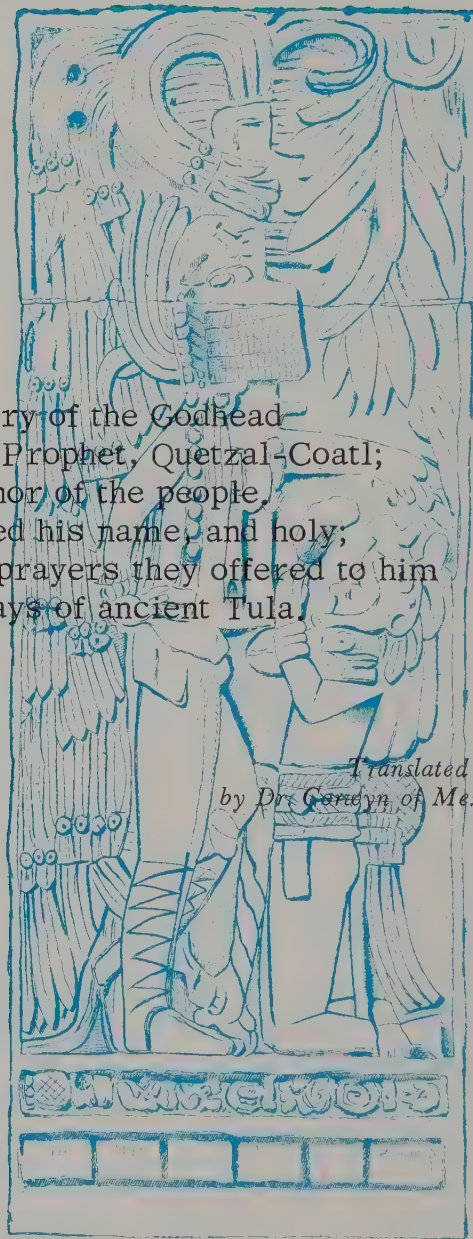 ry of the Godhead
Prophet, Quetzal-Coatl;
nor of the people.
ed his name, and holy;
prayers they offered to him
ays of ancient Tula.
Translated
by Dr. Gorwyn of Me.